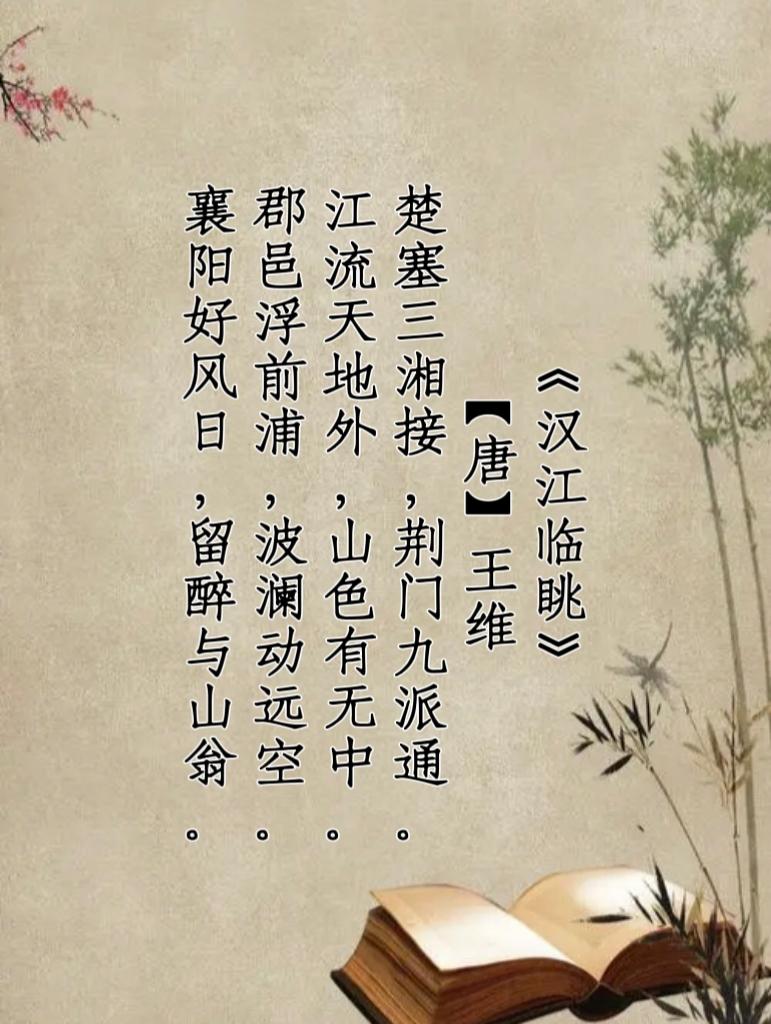 《汉江临眺》
【唐】王维
楚塞三湘接，荆门九派通。
江流天地外，山色有无中。
郡邑浮前浦，波澜动远空。
襄阳好风日，留醉与山翁。